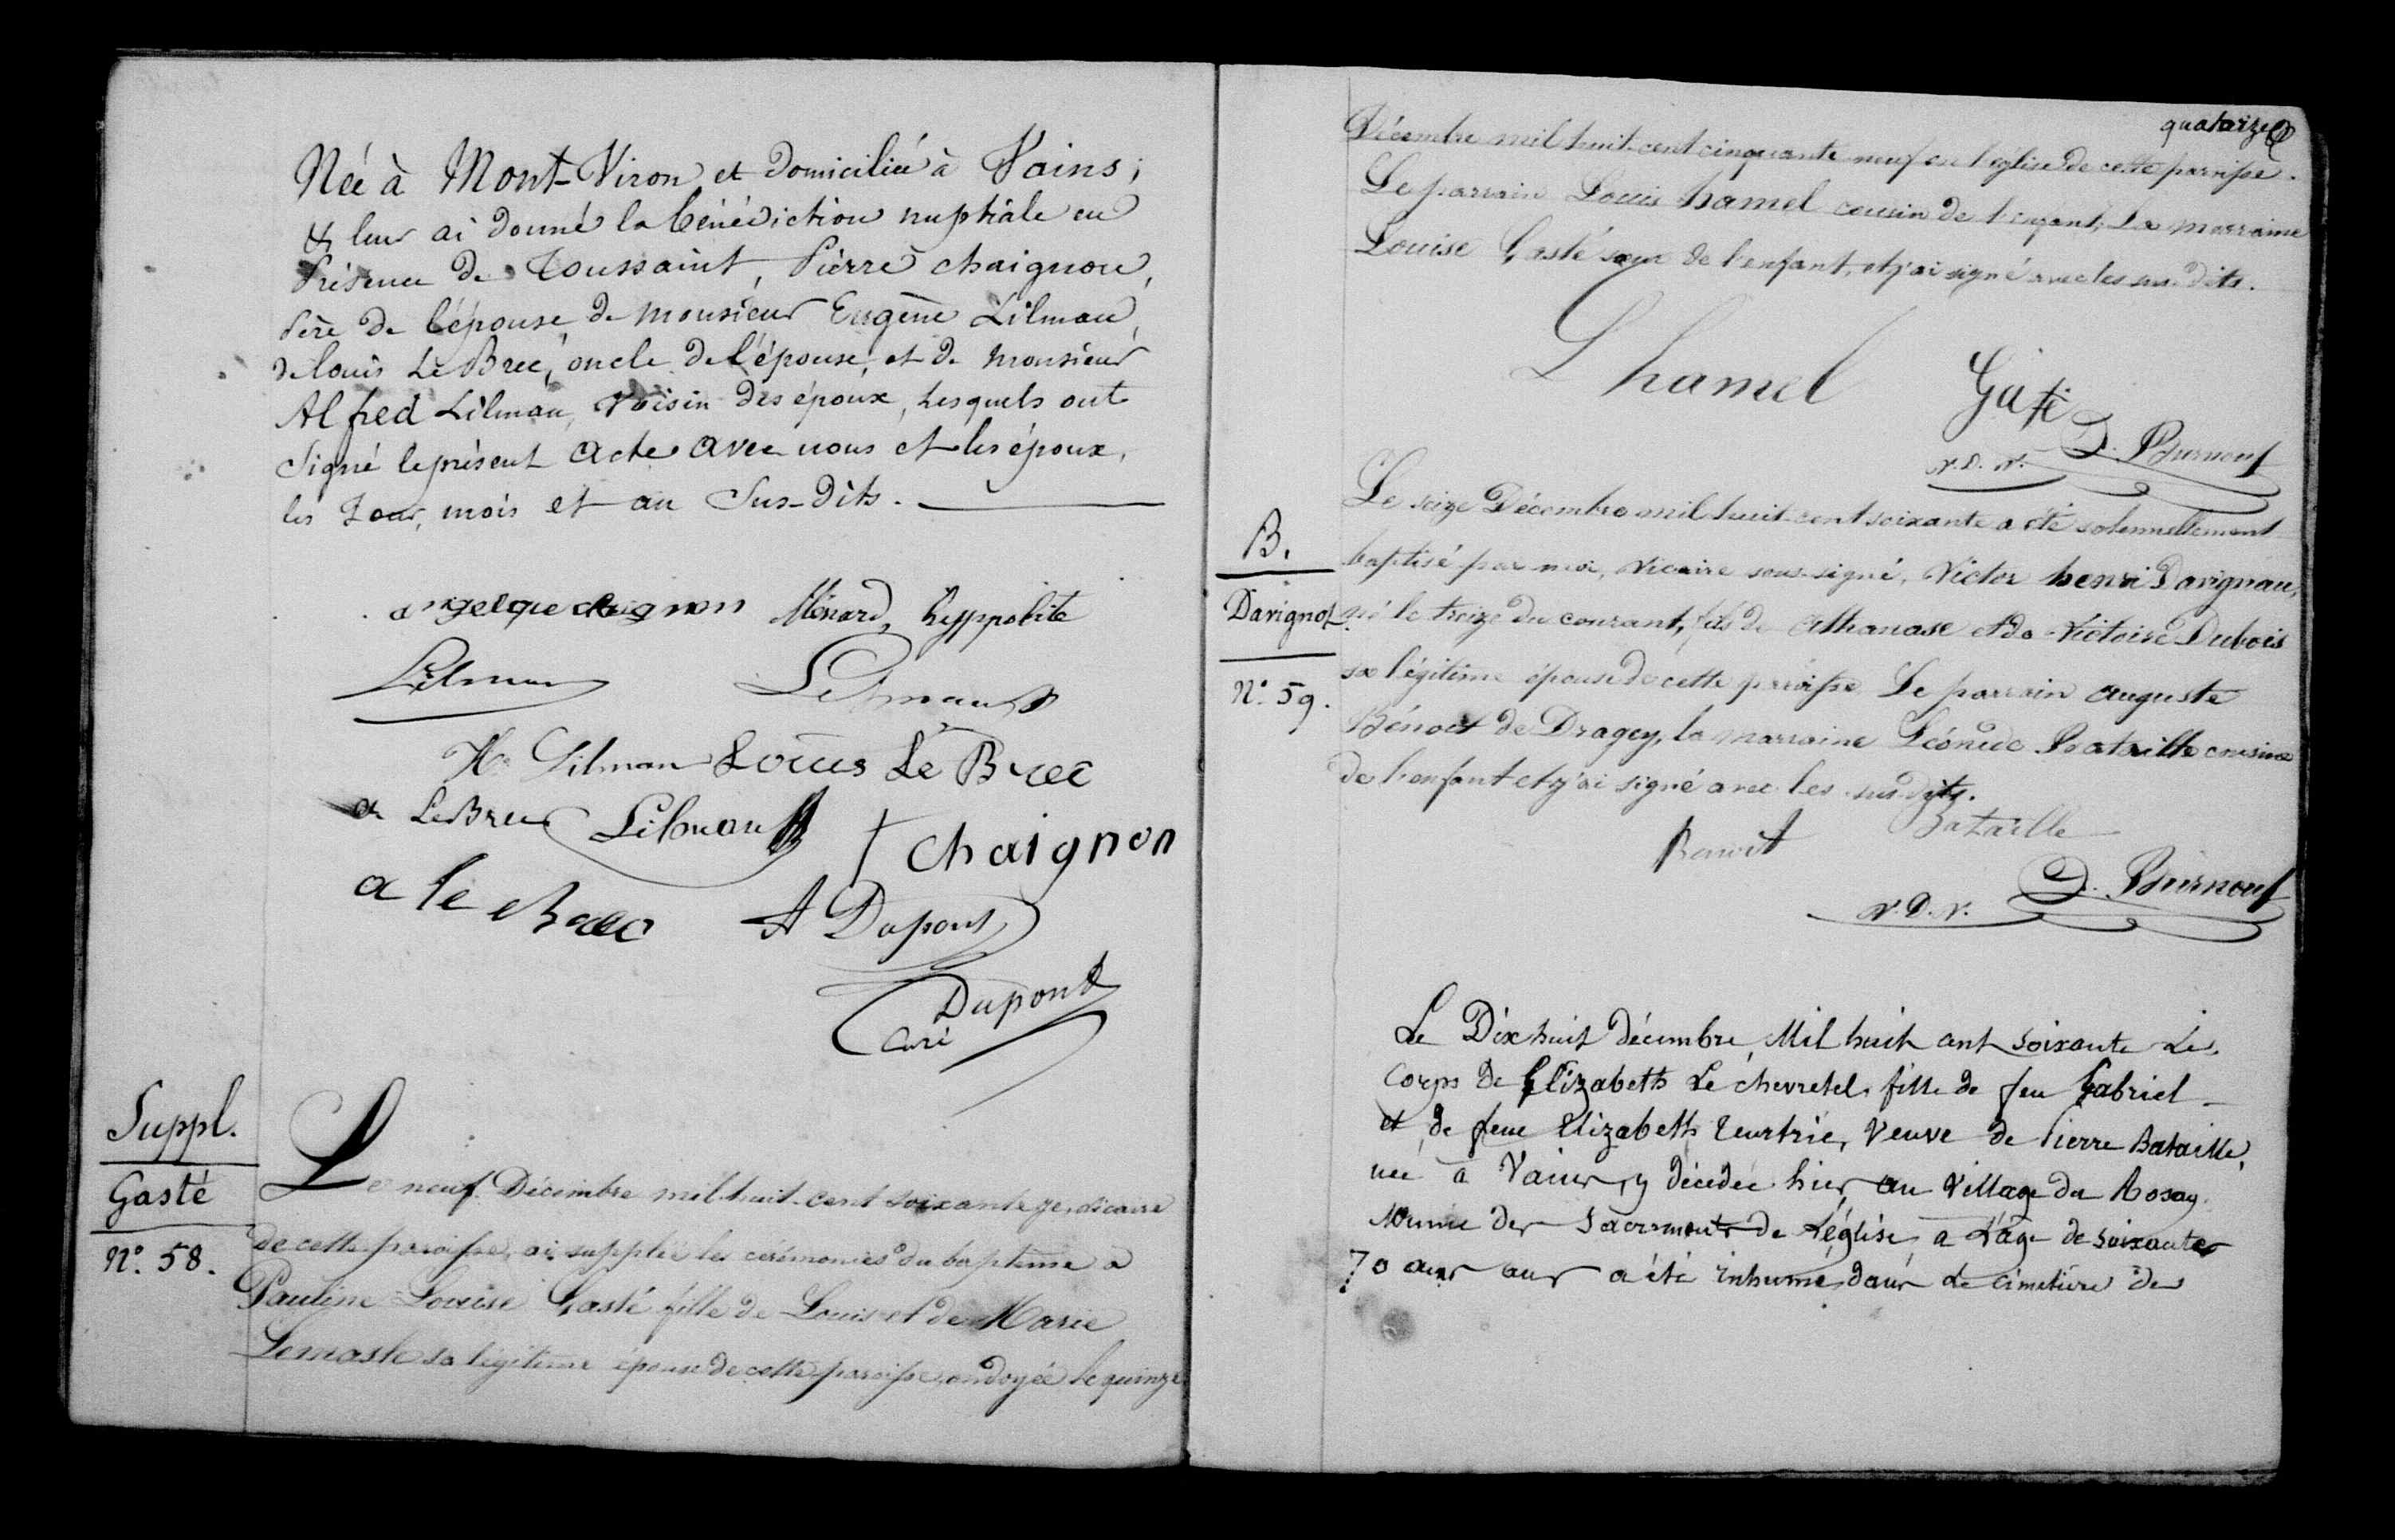 Née à Mont-Viron et domiciliée à Vains;
& leur ai donné la bénédiction nuptiale en
Présence de Toussaint, Pierre chaignon,
Père de l'épouse, de monsieur Eugène Lilman,
de louis Le Brec, oncle de l'épouse, et de monsieur
Alfred Lilman, voisin des époux, lesquels ont
Signé le présent acte avec nous et les époux,
les Jour, mois et an Sus-dits.
angelque chaignon Ménard, hyppolite
Lilman Lilman
H Lilman Louis Le Brec
a LeBrec Lilman
† Chaignon
a le Brec A Dupont
Dupont
Curé
Suppl.
Gasté
N° 58.
Le neuf Décembre mil huit-cent soixante je, vicaire
de cette paroisse, ai supplée les cérémonies du baptême à
Pauline Louise Gasté fille de Louis et de Marie
Lemasle sa légitime épouse de cette paroisse, ondoyée le quinze
quatorze
Décembre mil huit-cent cinquante neuf en l'église de cette paroisse.
Le parrain Louis hamel cousin de l'enfant, La marraine
Louise Gasté sœur de l'enfant, et j'ai signé avec les sus-dits.
L hamel Gasté
D. Burnouf
v. d. v.
B.
Davignot
N° 59.
Le seize Décembre mil huit-cent soixante a été solennellement
baptisé par moi, vicaire sous-signé, Victor henri Davignau,
né le treize du courant, fils de Athanase et de Victoire Dubois
sa légitime épouse de cette paroisse Le parrain auguste
Bénoit de Dragey, la marraine Léonide Bataille cousine
de l'enfant et j'ai signé avec les sus-dits.
Benoit Bataille
D. Burnouf
v. d. v.
Le Dix huit décembre, Mil huit cent soixante Le
Corps de Elizabeth Le chevretel, fille de feu Gabriel
et de feue Elizabeth Teurtrie, Veuve de Pierre Bataille,
née à Vains, y décédée hier, au Village du Rosay
Munie des Sacrements de L'église, a L'age de soixante
70 ans ans a été inhumé dans Le cimetière de